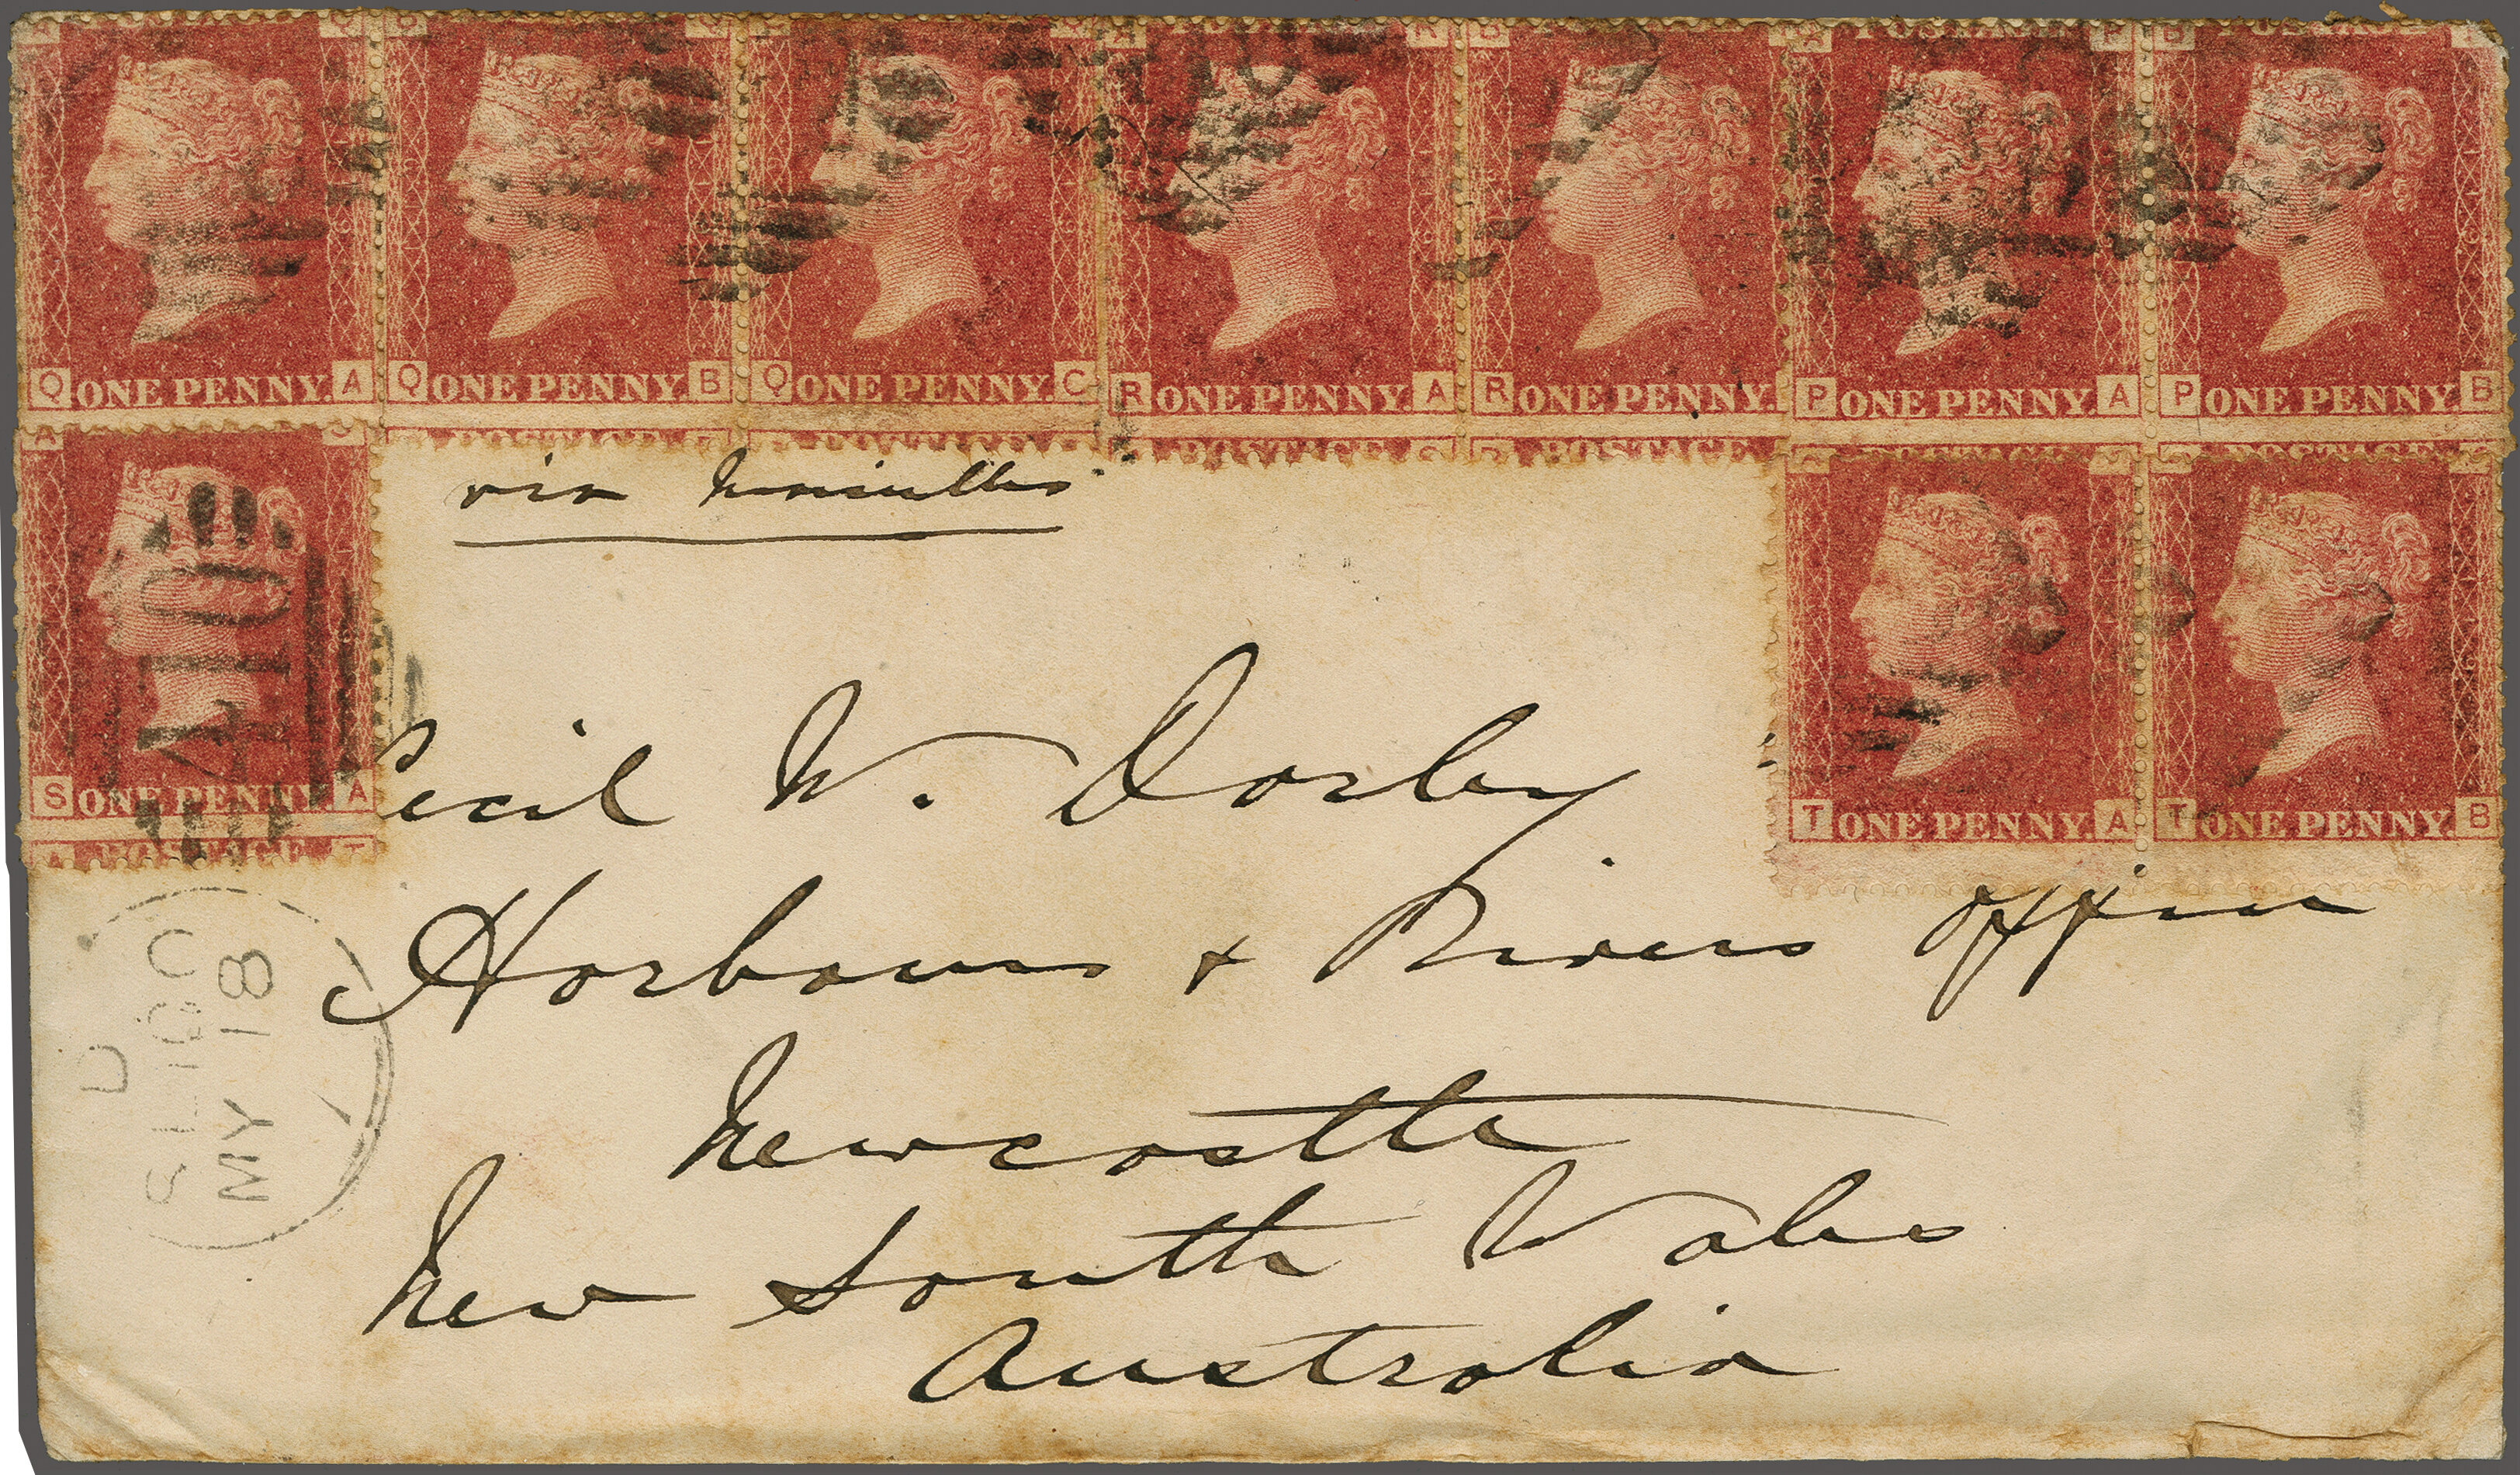 Q ONE PENNY. A Q ONE PENNY. B Q ONE PENNY. C R ONE PENNY. A R ONE PENNY. P ONE PENNY. A P ONE PENNY. B
POSTAGE POSTAGE POSTAGE POSTAGE
via
S ONE PENNY. A
T ONE PENNY. A T ONE PENNY. B
POSTAGE
410
Cecil W. Darley
Harbours & Rivers Office
Newcastle
New South Wales
Australia
D
SLIGO
MY 18